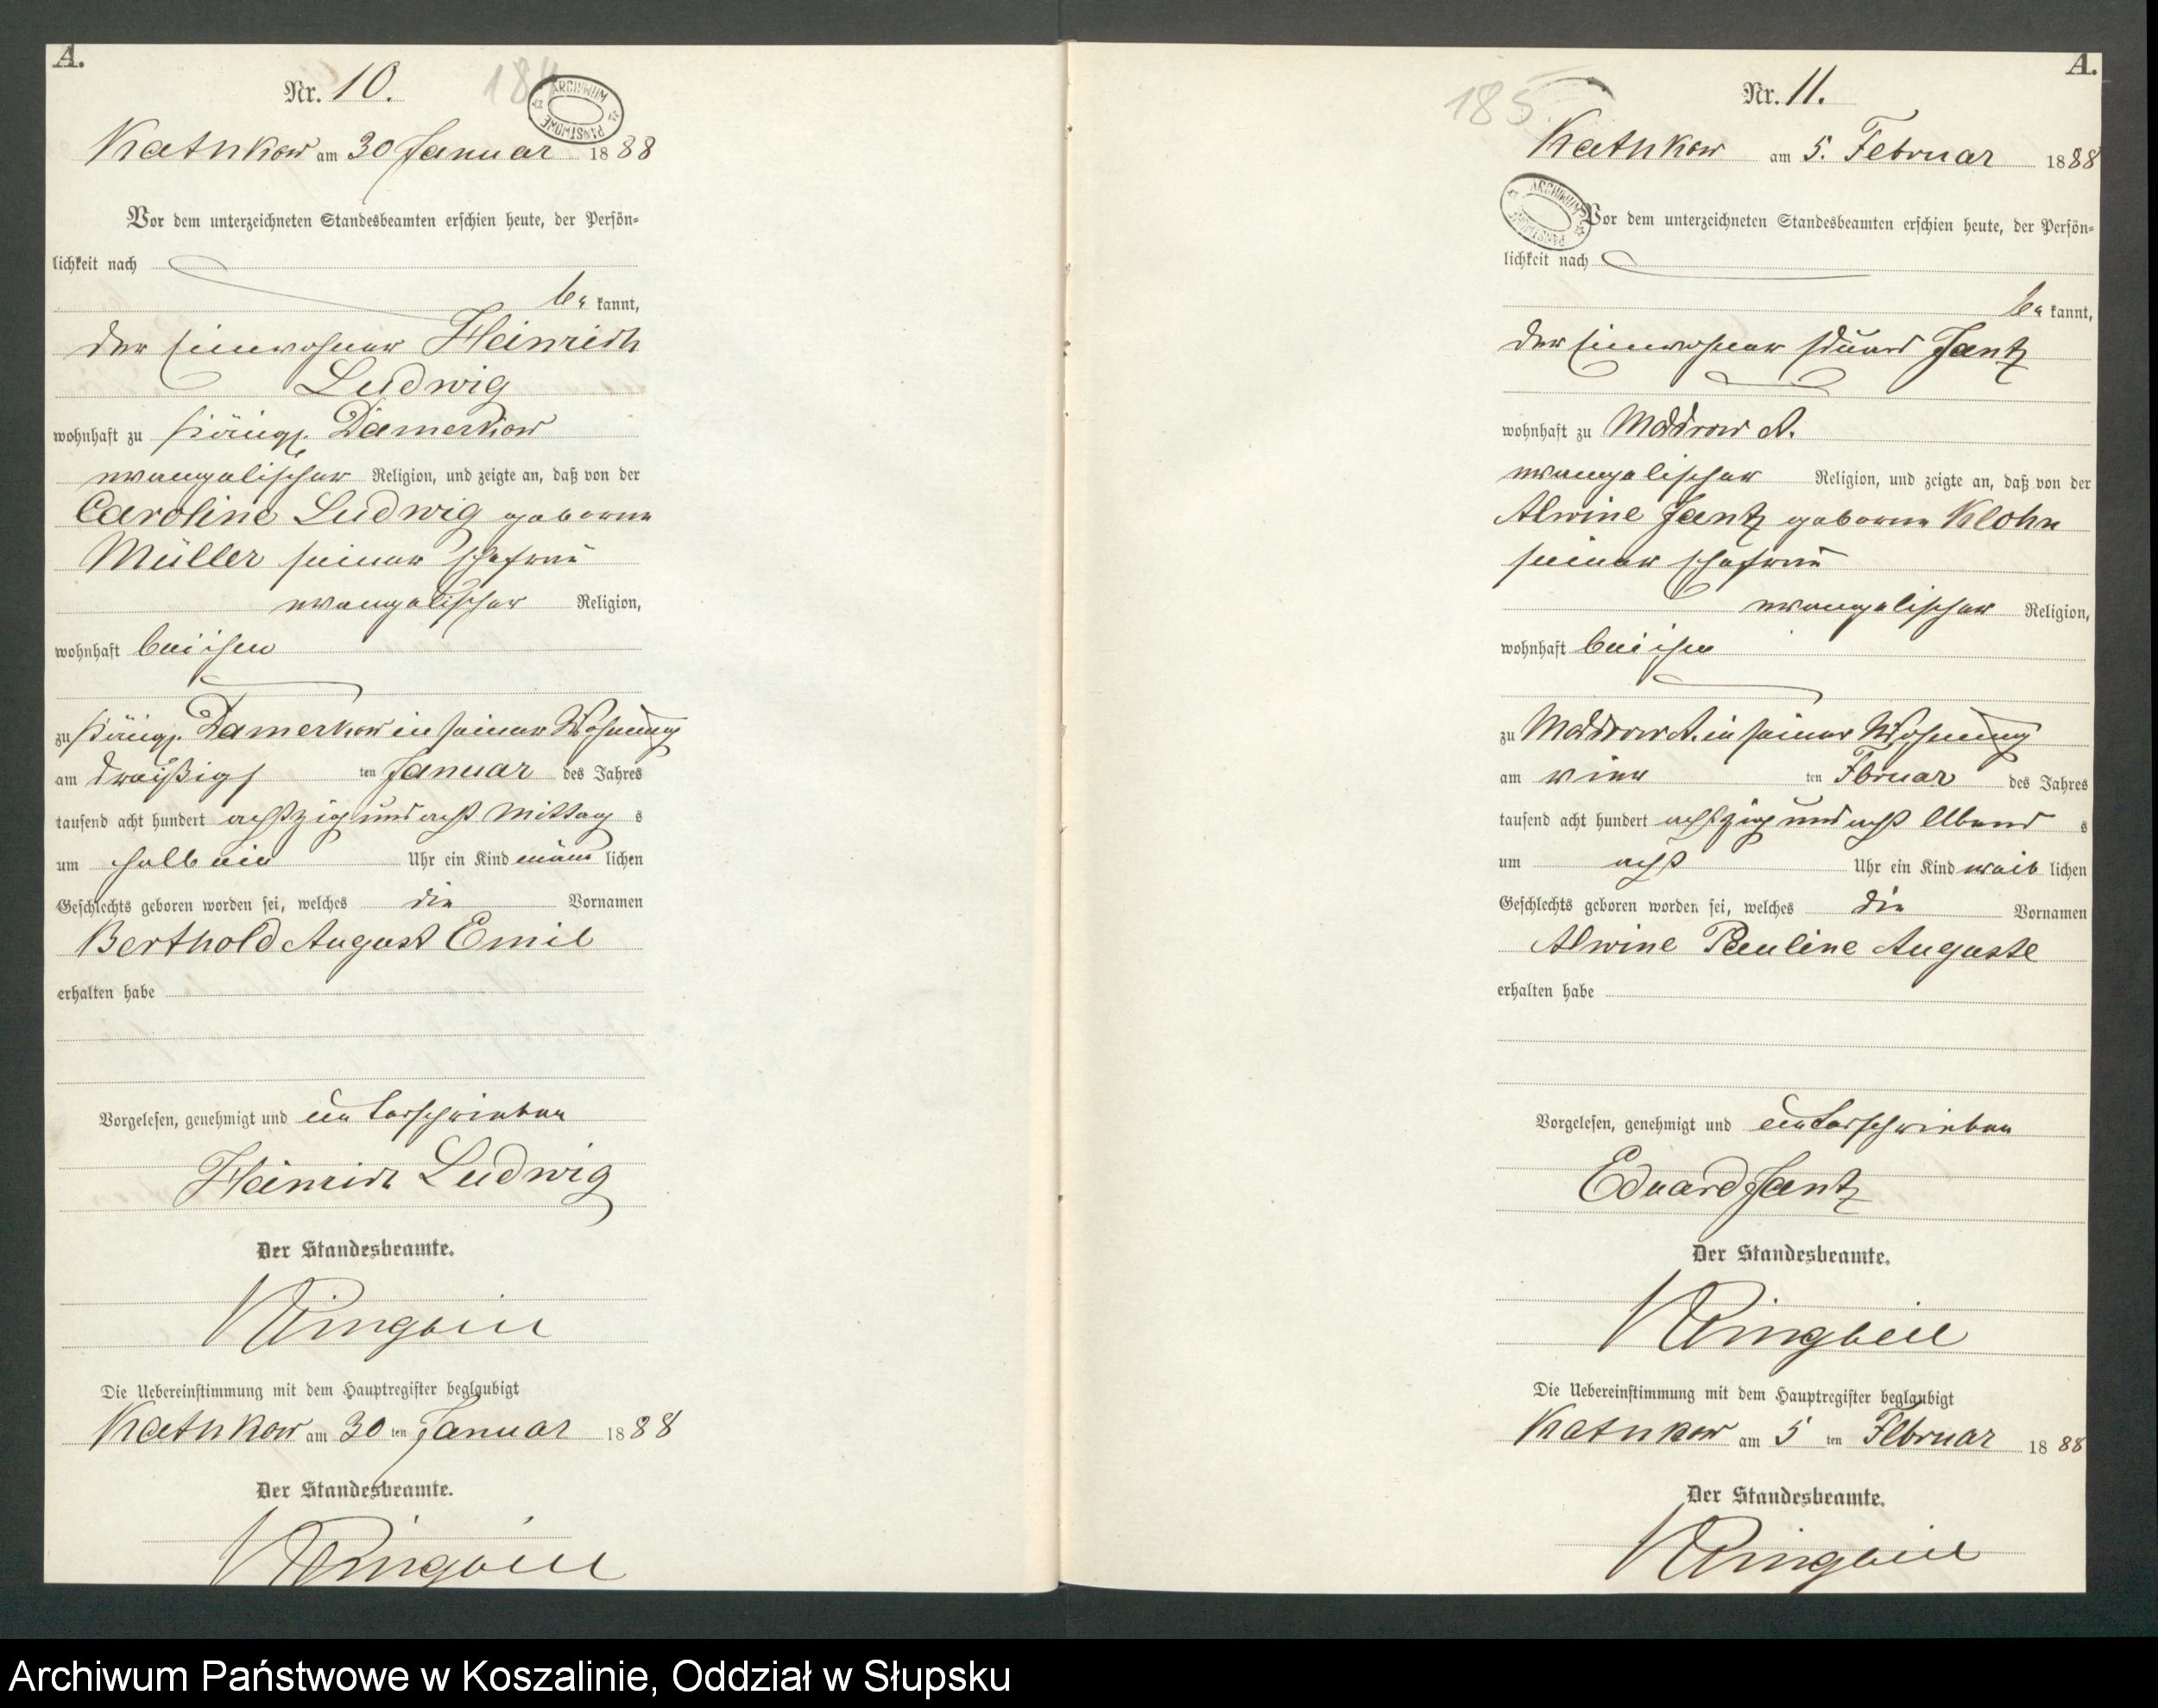 A.
Nr. 10.
184
ARCHIWUM PAŃSTWOWE
Katnkow am 30 Januar 1888
Vor dem unterzeichneten Standesbeamten erschien heute, der Persön-
lichkeit nach
be kannt,
der Einwohner Heinrich
Ludwig
wohnhaft zu Königl. Damerkow
evangelischer Religion, und zeigte an, daß von der
Caroline Ludwig geborne
Müller seiner Ehefrau
evangelischer Religion,
wohnhaft bei ihm
zu Königl. Damerkow in seiner Wohnung
am dreißigs ten Januar des Jahres
tausend acht hundert achtzig und acht Mittag s
um halb ein Uhr ein Kind männ lichen
Geschlechts geboren worden sei, welches die Vornamen
Berthold August Emil
erhalten habe
Vorgelesen, genehmigt und unterschrieben
Heinrich Ludwig
Der Standesbeamte.
Die Uebereinstimmung mit dem Hauptregister beglaubigt
Katnkow am 30 ten Januar 1888
Der Standesbeamte.
A.
Nr. 11.
185
Katnkow am 5. Februar 1888
ARCHIWUM PAŃSTWOWE
Vor dem unterzeichneten Standesbeamten erschien heute, der Persön-
lichkeit nach
be kannt,
der Einwohner Eduard Jantz
wohnhaft zu Moddrow A.
evangelischer Religion, und zeigte an, daß von der
Alwine Jantz geborne Klohn
seiner Ehefrau
evangelischer Religion,
wohnhaft bei ihm
zu Moddrow A. in seiner Wohnung
am vier ten Februar des Jahres
tausend acht hundert achtzig und acht Abend s
um acht Uhr ein Kind weib lichen
Geschlechts geboren worden sei, welches die Vornamen
Alwine Pauline Auguste
erhalten habe
Vorgelesen, genehmigt und unterschrieben
Eduard Jantz
Der Standesbeamte.
Die Uebereinstimmung mit dem Hauptregister beglaubigt
Katnkow am 5 ten Februar 1888
Der Standesbeamte.
Archiwum Państwowe w Koszalinie, Oddział w Słupsku